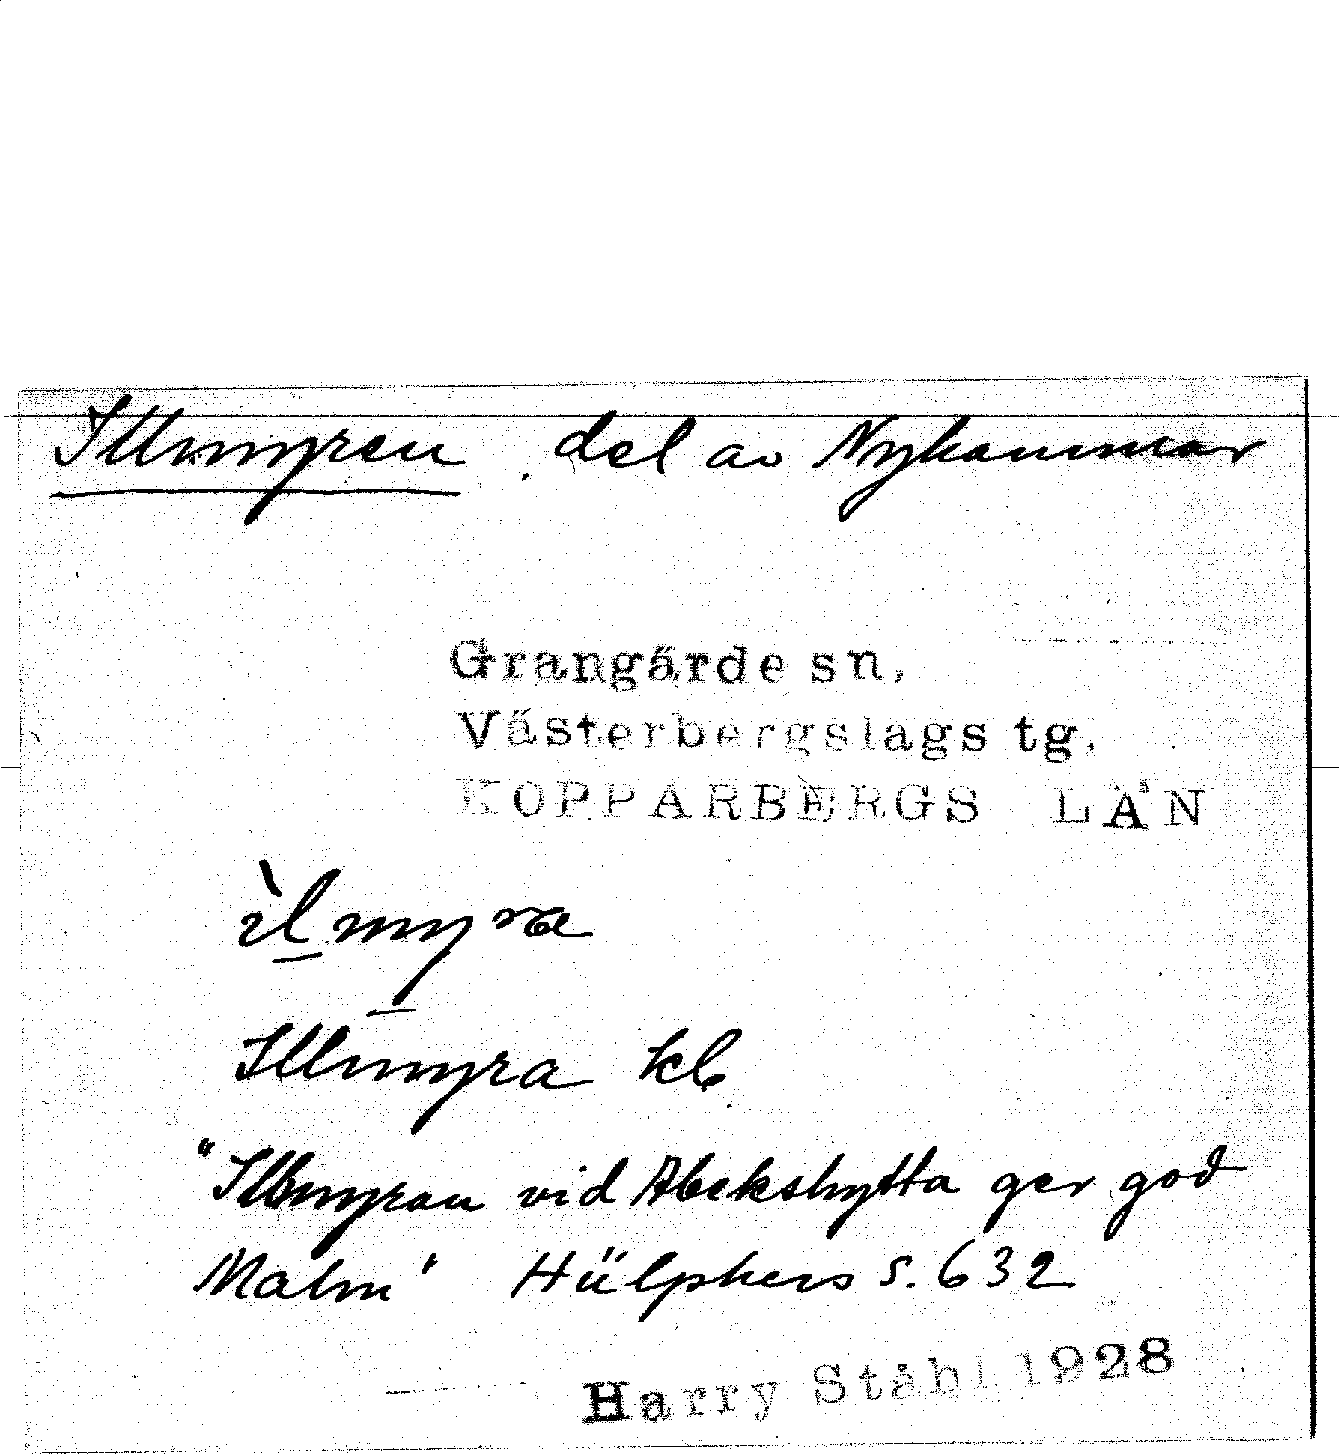 Illmyren del av Nyhammar
Grangärde sn,
Västerbergslags tg.
KOPPARBERGS LÄN
ìlmyra
Illmyra kb
"Illmyran vid Abekshytta ger god
Malm' Hülphers s. 632
Harry Ståhl 1928